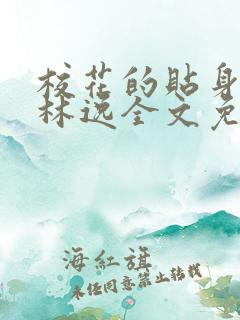 校花的贴身
林逸全文免
海紅旗
未经同意禁止转载